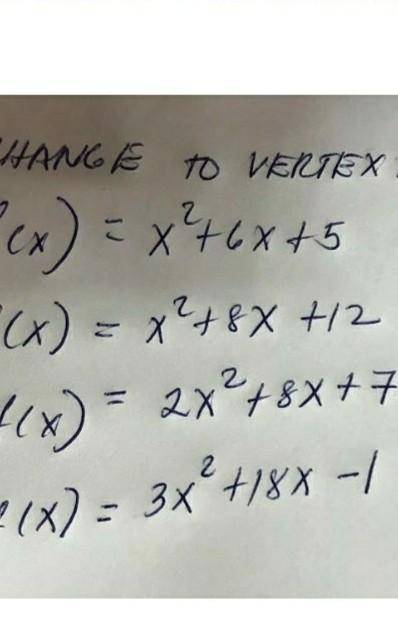 CHANGE TO VERTEX
f(x) = x²+6x+5
f(x) = x²+8x +12
f(x) = 2x²+8x+7
f(x) = 3x²+18x -1